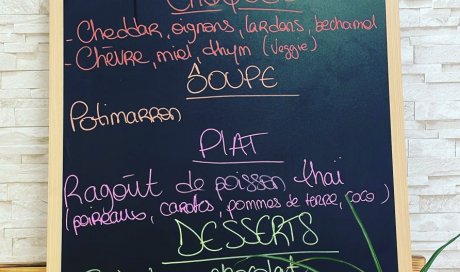 - Cheddar, oignons, lardons, bechamel
- Chèvre, miel, thym (Veggie)
SOUPE
Potimarron
PLAT
Ragoût de poisson thaï
(poireaux, carottes, pommes de terre, coco)
DESSERTS
chocolat